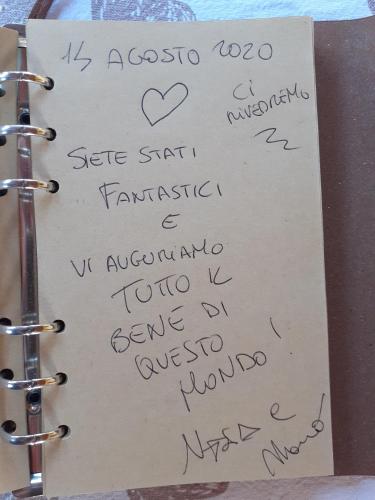 14 AGOSTO 2020
CI
RIVEDREMO
SIETE STATI
FANTASTICI
E
VI AUGURIAMO
TUTTO IL
BENE DI
QUESTO
MONDO!
e